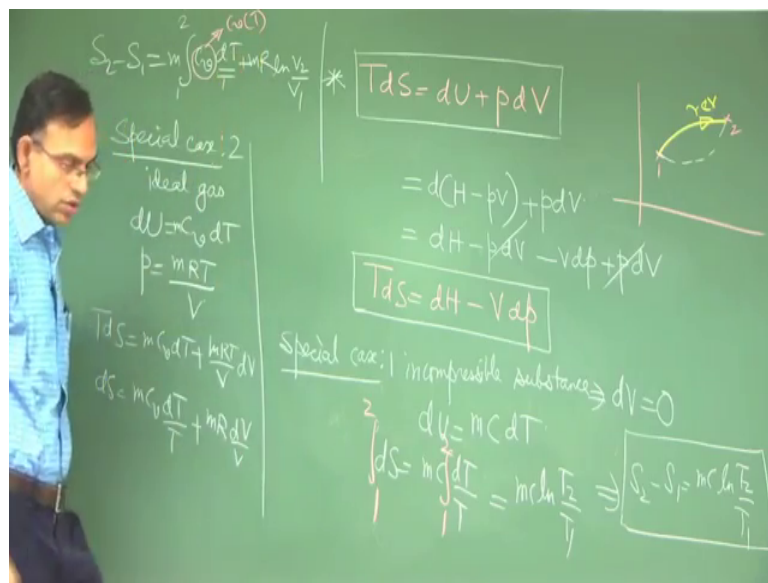 C_v(T)
S₂-S₁ = m ∫₁² C_v dT/T + mR ln V₂/V₁
Special case: 2
ideal gas
dU = mC_v dT
p = mRT/V
TdS = mC_v dT + mRT/V dV
dS = mC_v dT/T + mR dV/V
* TdS = dU + pdV
= d(H - pV) + pdV
= dH - pdV - Vdp + pdV
TdS = dH - Vdp
Special case: 1 incompressible substance ⇒ dV = 0
dU = mC dT
∫₁² dS = mC ∫₁² dT/T = mC ln T₂/T₁ ⇒ S₂-S₁ = mC ln T₂/T₁
rev
1
2